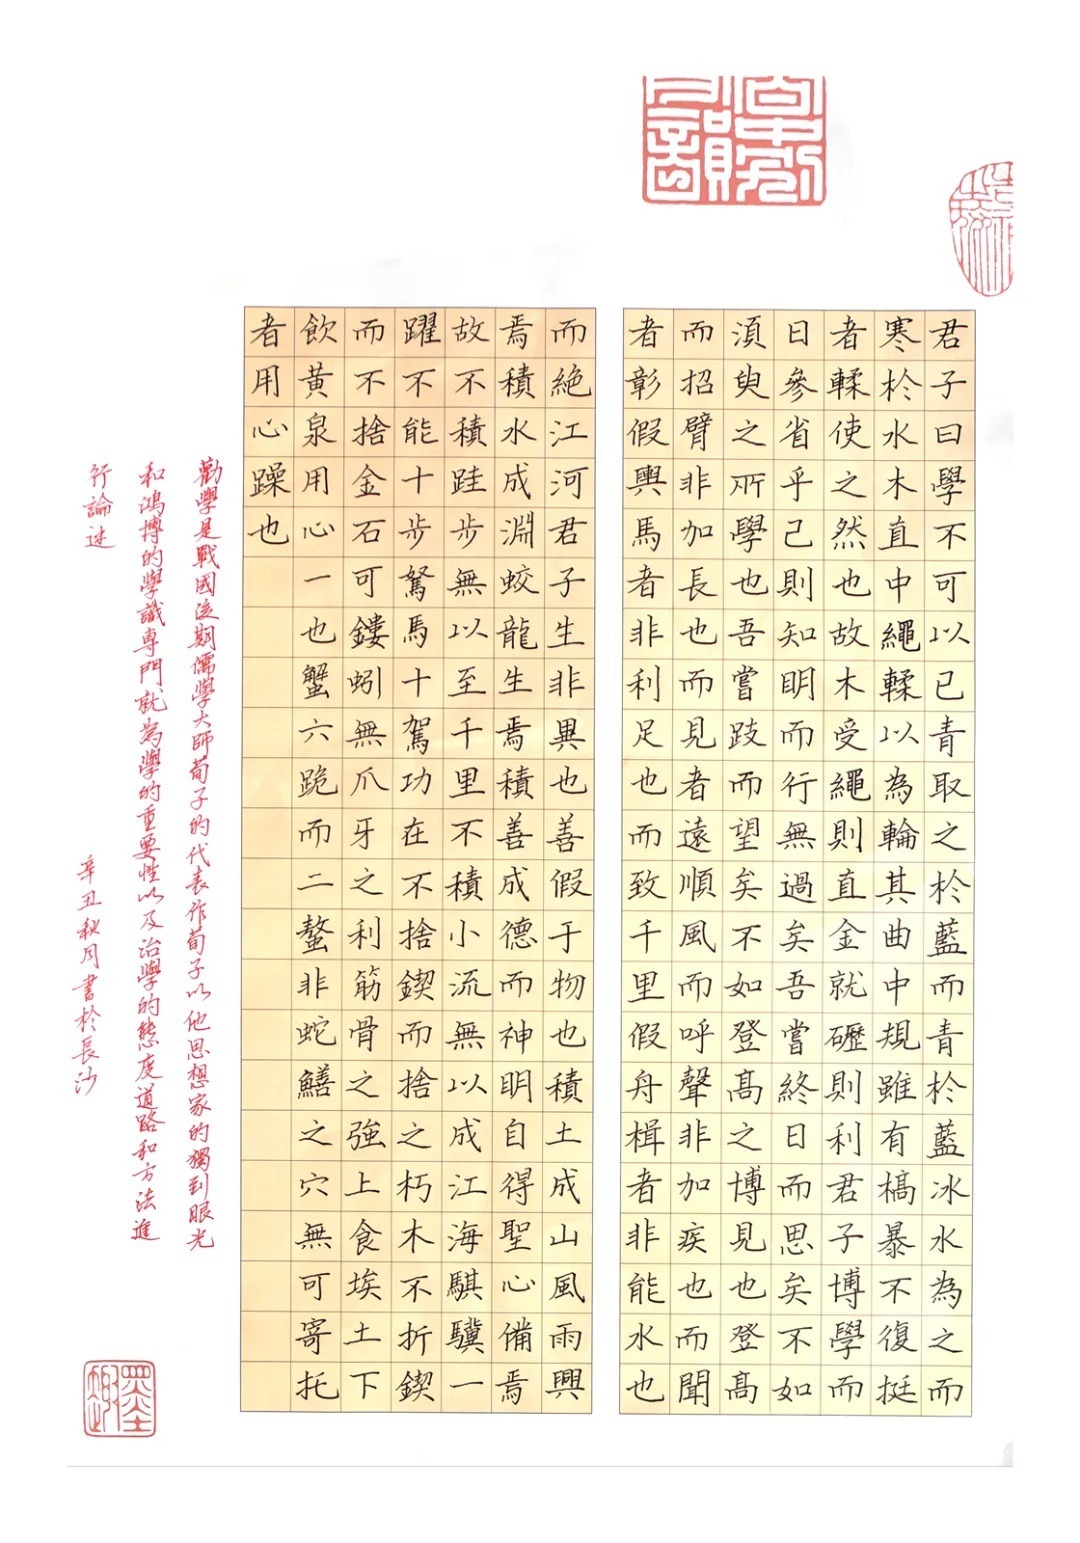 君子曰學不可以已青取之於藍而青於藍冰水為之而
寒於水木直中繩輮以為輪其曲中規雖有槁暴不復挺
者輮使之然也故木受繩則直金就礪則利君子博學而
日參省乎己則知明而行無過矣吾嘗終日而思矣不如
須臾之所學也吾嘗跂而望矣不如登高之博見也登高
而招臂非加長也而見者遠順風而呼聲非加疾也而聞
者彰假輿馬者非利足也而致千里假舟楫者非能水也
而絕江河君子生非異也善假于物也積土成山風雨興
焉積水成淵蛟龍生焉積善成德而神明自得聖心備焉
故不積跬步無以至千里不積小流無以成江海騏驥一
躍不能十步駑馬十駕功在不捨鍥而捨之朽木不折鍥
而不捨金石可鏤蚓無爪牙之利筋骨之強上食埃土下
飲黄泉用心一也蟹六跪而二螯非蛇鱔之穴無可寄托
者用心躁也
勸學是戰國後期儒學大師荀子的代表作荀子以他思想家的獨到眼光
和鴻博的學識専門就為學的重要性以及治學的態度道路和方法進
行論述
辛丑秋月書於長沙